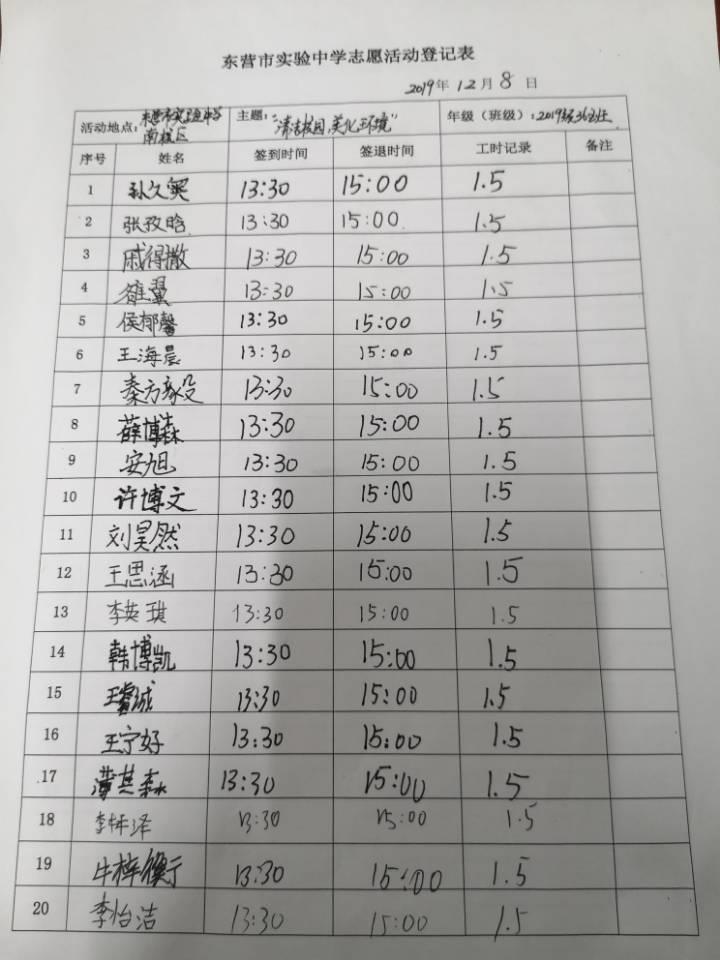 东营市实验中学志愿活动登记表
2019年 12月 8 日
活动地点: 东营市实验中学南校区 主题: "清洁校园,美化环境" 年级(班级): 2019级
序号 姓名 签到时间 签退时间 工时记录 备注
1 孙久奕 13:30 15:00 1.5
2 张孜晗 13:30 15:00 1.5
3 戚得撒 13:30 15:00 1.5
4 翼 13:30 15:00 1.5
5 侯郁馨 13:30 15:00 1.5
6 王海晨 13:30 15:00 1.5
7 秦方毅 13:30 15:00 1.5
8 薛博森 13:30 15:00 1.5
9 安旭 13:30 15:00 1.5
10 许博文 13:30 15:00 1.5
11 刘昊然 13:30 15:00 1.5
12 王思涵 13:30 15:00 1.5
13 李英琪 13:30 15:00 1.5
14 韩博凯 13:30 15:00 1.5
15 王睿诚 13:30 15:00 1.5
16 王宁好 13:30 15:00 1.5
17 薄其森 13:30 15:00 1.5
18 李 泽 13:30 15:00 1.5
19 牛梓衡 13:30 15:00 1.5
20 李怡洁 13:30 15:00 1.5